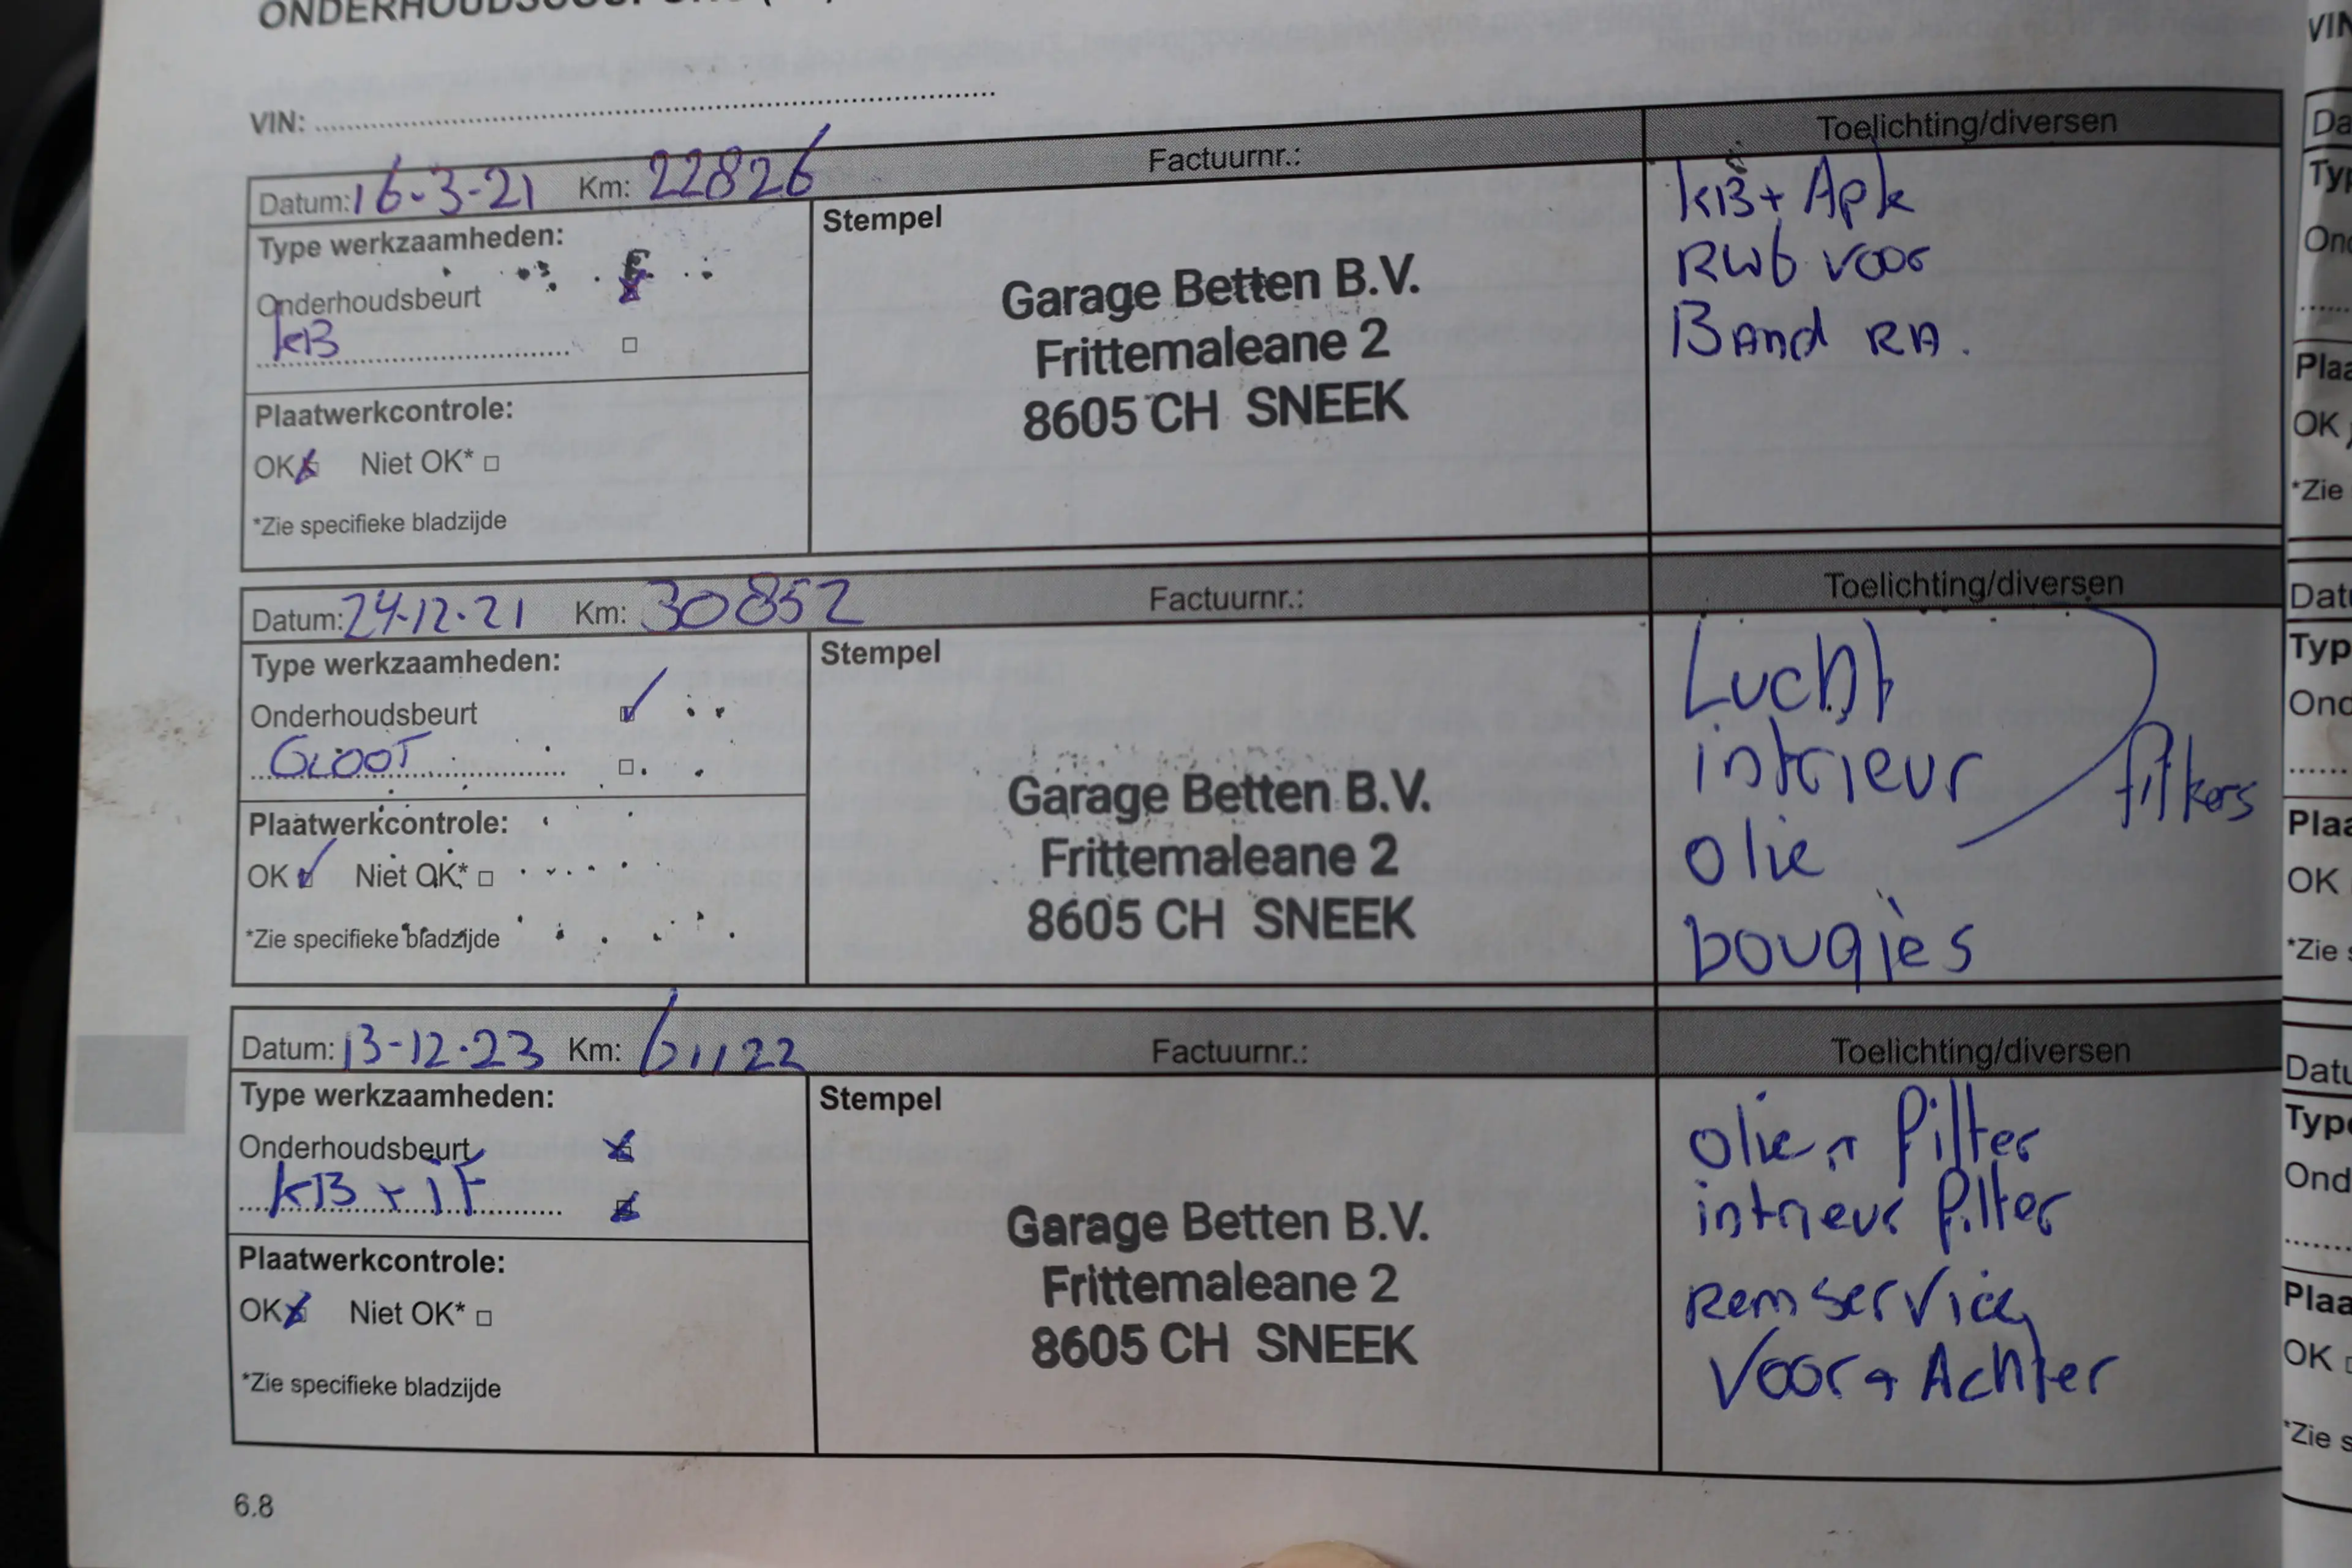 VIN:
Datum: 16-3-21 Km: 22826 Factuurnr.: Toelichting/diversen
Type werkzaamheden:
Onderhoudsbeurt
KB
Plaatwerkcontrole:
OK Niet OK*
*Zie specifieke bladzijde
Stempel
Garage Betten B.V.
Frittemaleane 2
8605 CH SNEEK
KB + Apk
RWb voor
Band RA.
Datum: 24-12-21 Km: 30852 Factuurnr.: Toelichting/diversen
Type werkzaamheden:
Onderhoudsbeurt
GROOT
Plaatwerkcontrole:
OK Niet OK*
*Zie specifieke bladzijde
Stempel
Garage Betten B.V.
Frittemaleane 2
8605 CH SNEEK
Lucht
intrieur
olie
filters
bougiès
Datum: 13-12-23 Km: 61122 Factuurnr.: Toelichting/diversen
Type werkzaamheden:
Onderhoudsbeurt
KB + iF
Plaatwerkcontrole:
OK Niet OK*
*Zie specifieke bladzijde
Stempel
Garage Betten B.V.
Frittemaleane 2
8605 CH SNEEK
olie + filter
intrieur filter
Remservice
Voor + Achter
6.8